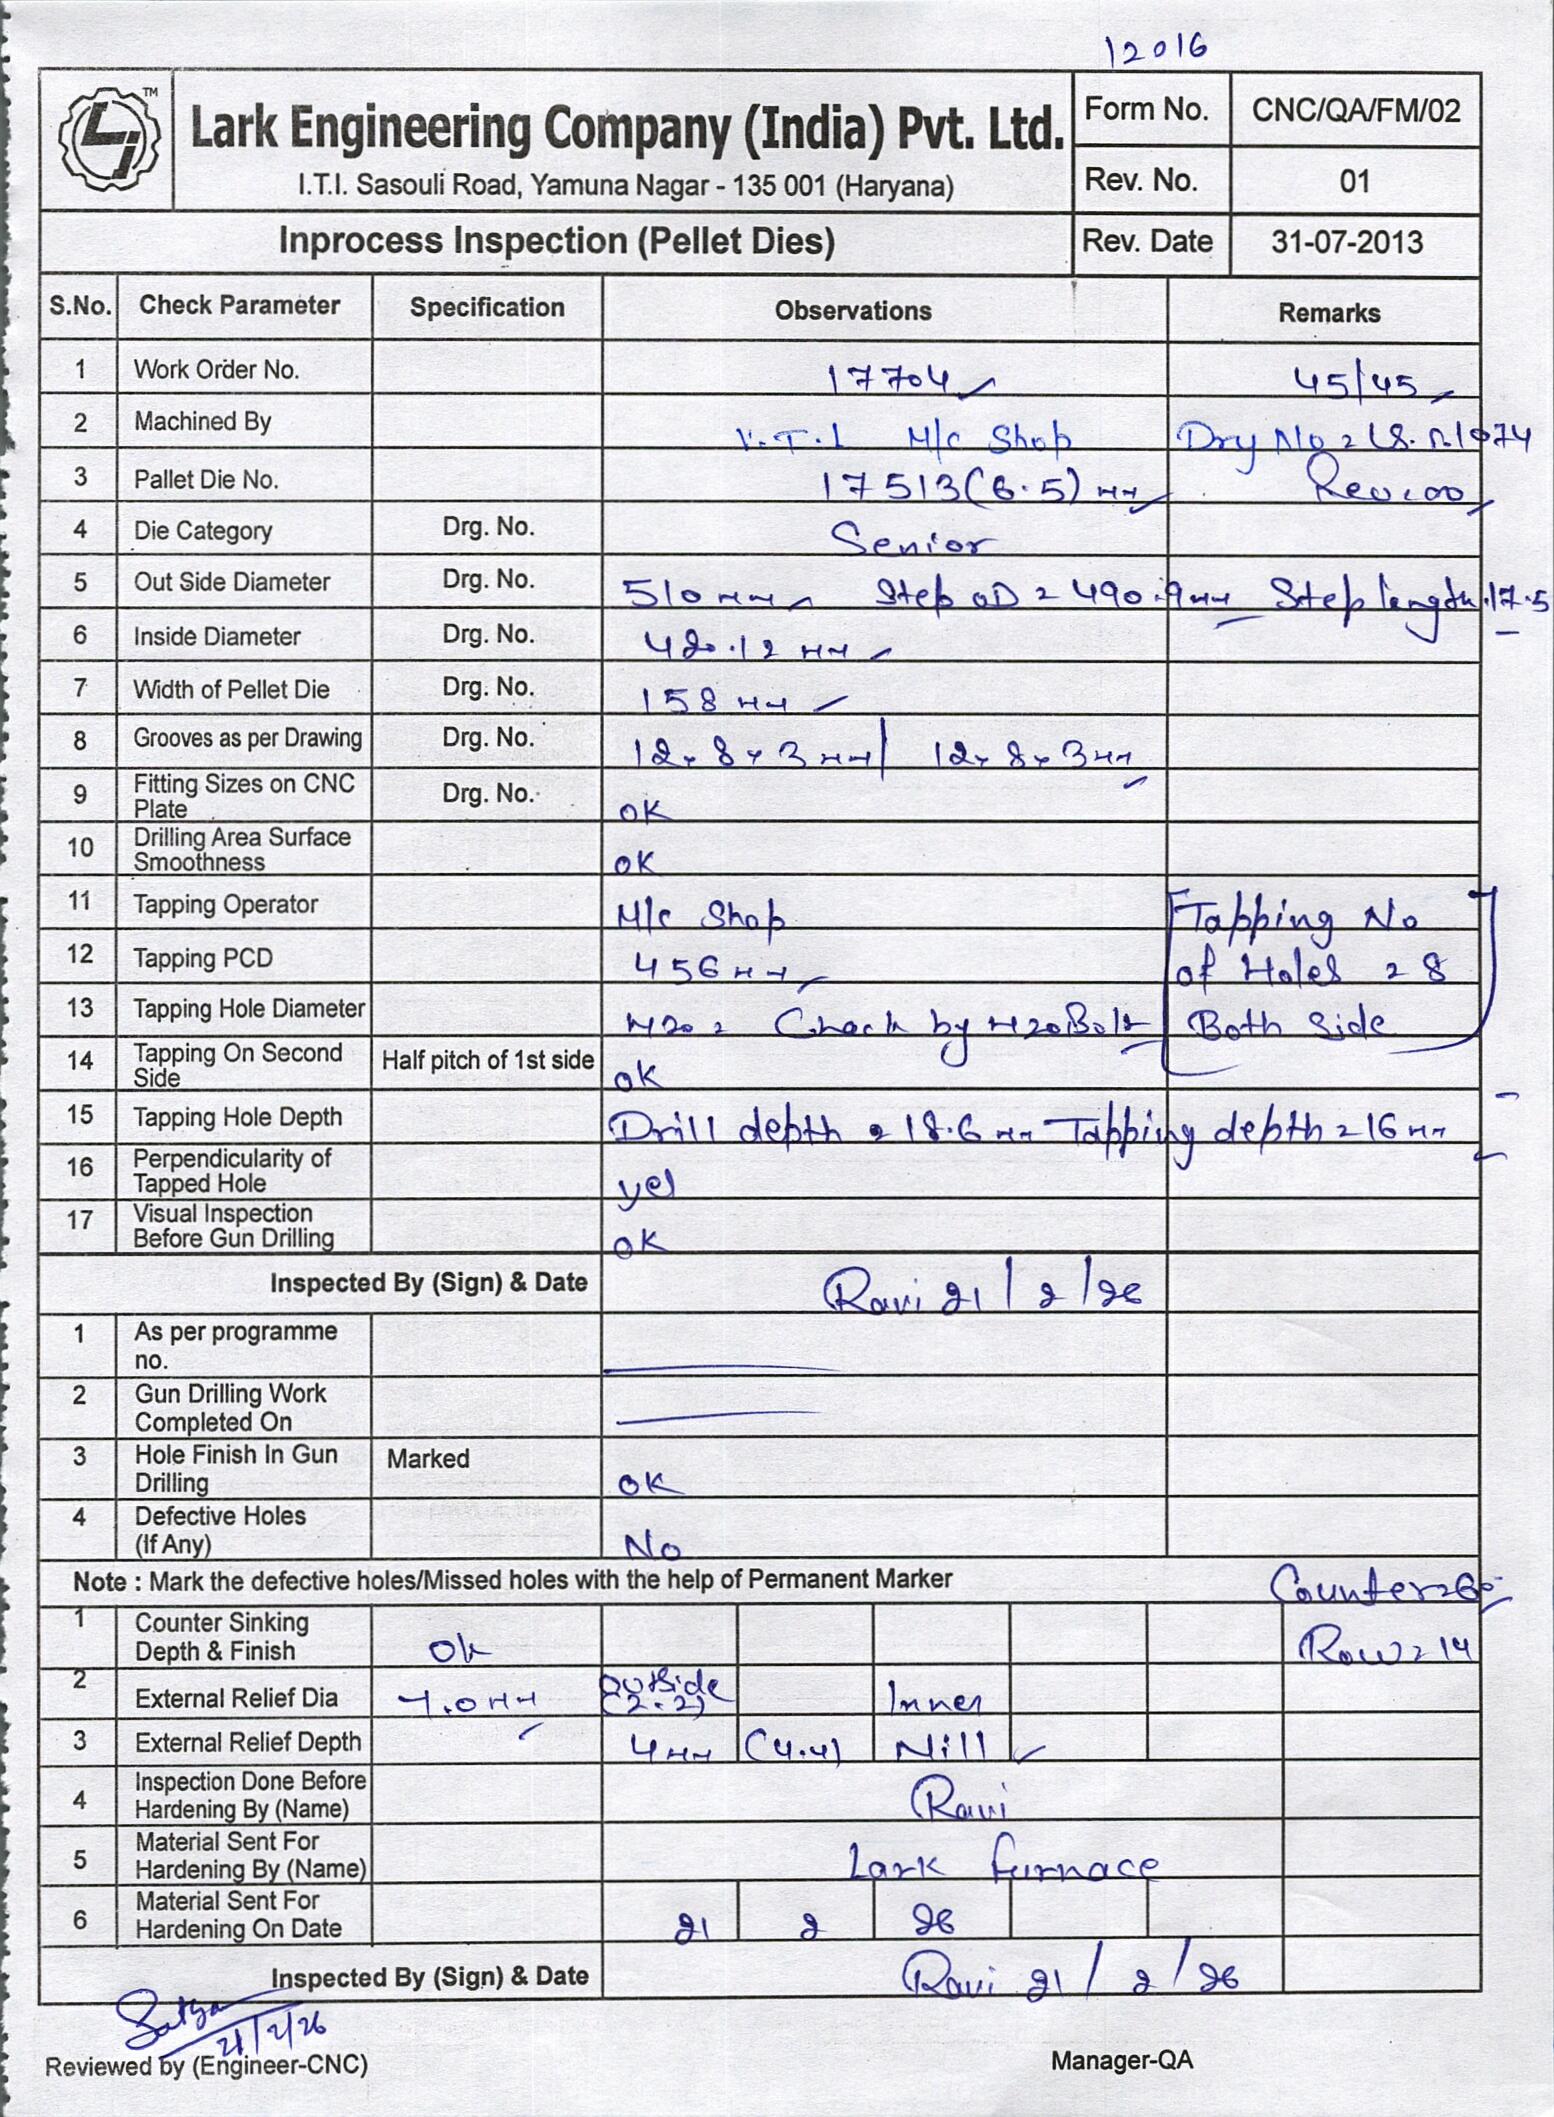 12016
TM
Lark Engineering Company (India) Pvt. Ltd.
I.T.I. Sasouli Road, Yamuna Nagar - 135 001 (Haryana)
Form No. CNC/QA/FM/02
Rev. No. 01
Inprocess Inspection (Pellet Dies)
Rev. Date 31-07-2013
S.No. Check Parameter Specification Observations Remarks
1 Work Order No. 17704 45/45
2 Machined By M/c Shop
3 Pallet Die No. 17513(6.5) mm
4 Die Category Drg. No. Senior
5 Out Side Diameter Drg. No. 510 mm Step OD = 490.9mm Step length 17.5
6 Inside Diameter Drg. No. 420.12 mm
7 Width of Pellet Die Drg. No. 158 mm
8 Grooves as per Drawing Drg. No. 12 x 8 x 3 mm / 12 x 8 x 3mm
9 Fitting Sizes on CNC Plate Drg. No. OK
10 Drilling Area Surface Smoothness OK
11 Tapping Operator M/c Shop Tapping No
12 Tapping PCD 456 mm of Holes = 8
13 Tapping Hole Diameter M20 = Check by M20 Bolt Both Side
14 Tapping On Second Side Half pitch of 1st side OK
15 Tapping Hole Depth Drill depth = 18.6 mm Tapping depth = 16 mm
16 Perpendicularity of Tapped Hole yes
17 Visual Inspection Before Gun Drilling OK
Inspected By (Sign) & Date Ravi 21/2/26
1 As per programme no.
2 Gun Drilling Work Completed On
3 Hole Finish In Gun Drilling Marked OK
4 Defective Holes (If Any) No
Note : Mark the defective holes/Missed holes with the help of Permanent Marker Counter = 60
1 Counter Sinking Depth & Finish Ok Row = 14
2 External Relief Dia 7.0 mm Outside (2.2) Inner
3 External Relief Depth 4mm (4.4) Nill
4 Inspection Done Before Hardening By (Name) Ravi
5 Material Sent For Hardening By (Name) Lark furnace
6 Material Sent For Hardening On Date 21 2 26
Inspected By (Sign) & Date Ravi 21/2/26
21/2/26
Reviewed by (Engineer-CNC) Manager-QA